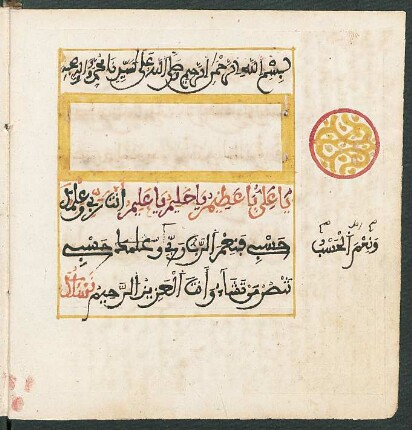 بسم الله الرحمن الرحيم وصلى الله على سيدنا محمد واله
يا علي يا عظيم يا حليم يا عليم أنت ربي وعلمك
حسبي فنعم الرب ربي وعلمك حسبي
ونعم الحسب
تنصر من تشاء وأنت العزيز الرحيم نسألك